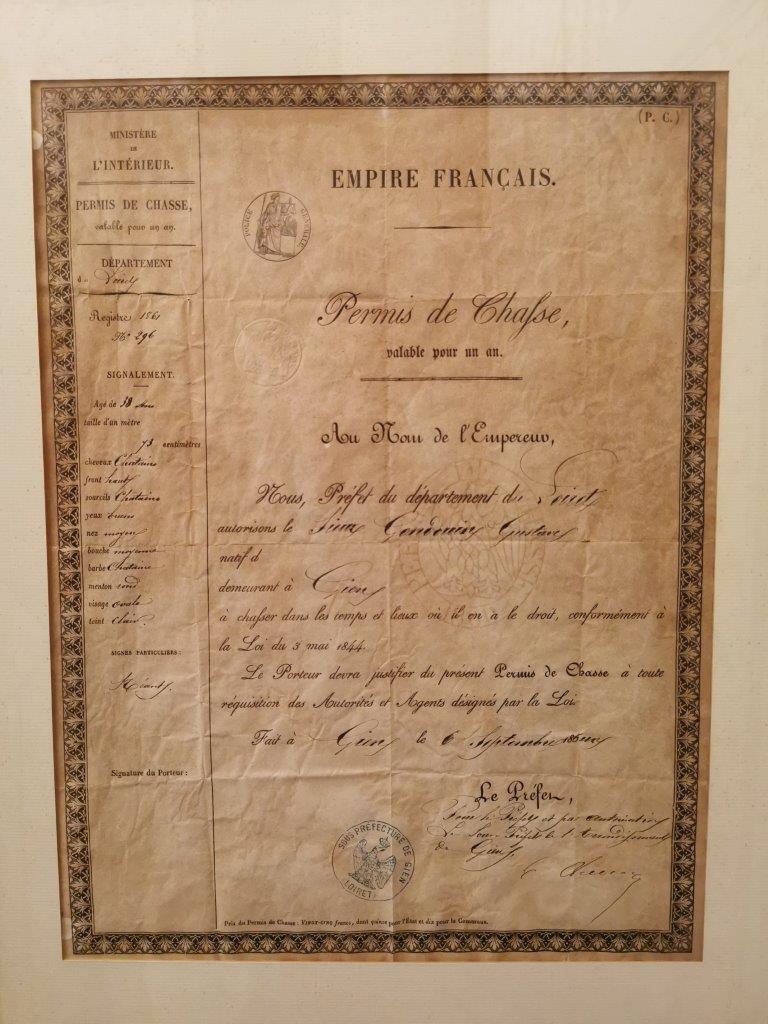 (P. C.)
MINISTÈRE
DE
L'INTÉRIEUR.
PERMIS DE CHASSE,
valable pour un an.
DÉPARTEMENT
d Loiret
Registre 1861
No 296
SIGNALEMENT.
Agé de 38 ans
taille d'un mètre
73 centimètres
cheveux Chatains
front haut
sourcils Chatains
yeux bruns
nez moyen
bouche moyenne
barbe Chataine
menton rond
visage ovale
teint Clair.
SIGNES PARTICULIERS :
Néant
Signature du Porteur :
EMPIRE FRANÇAIS.
POLICE GÉNÉRALE
Permis de Chaſse,
valable pour un an.
Au Nom de l'Empereur,
Nous, Préfet du département du Loiret
autorisons le Sieur Gustave
natif d
demeurant à Gien
à chaſser dans les temps et lieux où il en a le droit, conformément à
la Loi du 3 mai 1844.
Le Porteur devra justifier du présent Permis de Chasse à toute
réquisition des Autorités et Agents désignés par la Loi.
Fait à Gien le 6 Septembre 186
Le Préfet,
Pour le Préfet et par autorisation
Le Sous Préfet de l'Arrondissement
de Gien
SOUS PRÉFECTURE DE GIEN
(LOIRET)
Prix du Permis de Chasse : VINGT-CINQ francs, dont quinze pour l'État et dix pour la Commune.